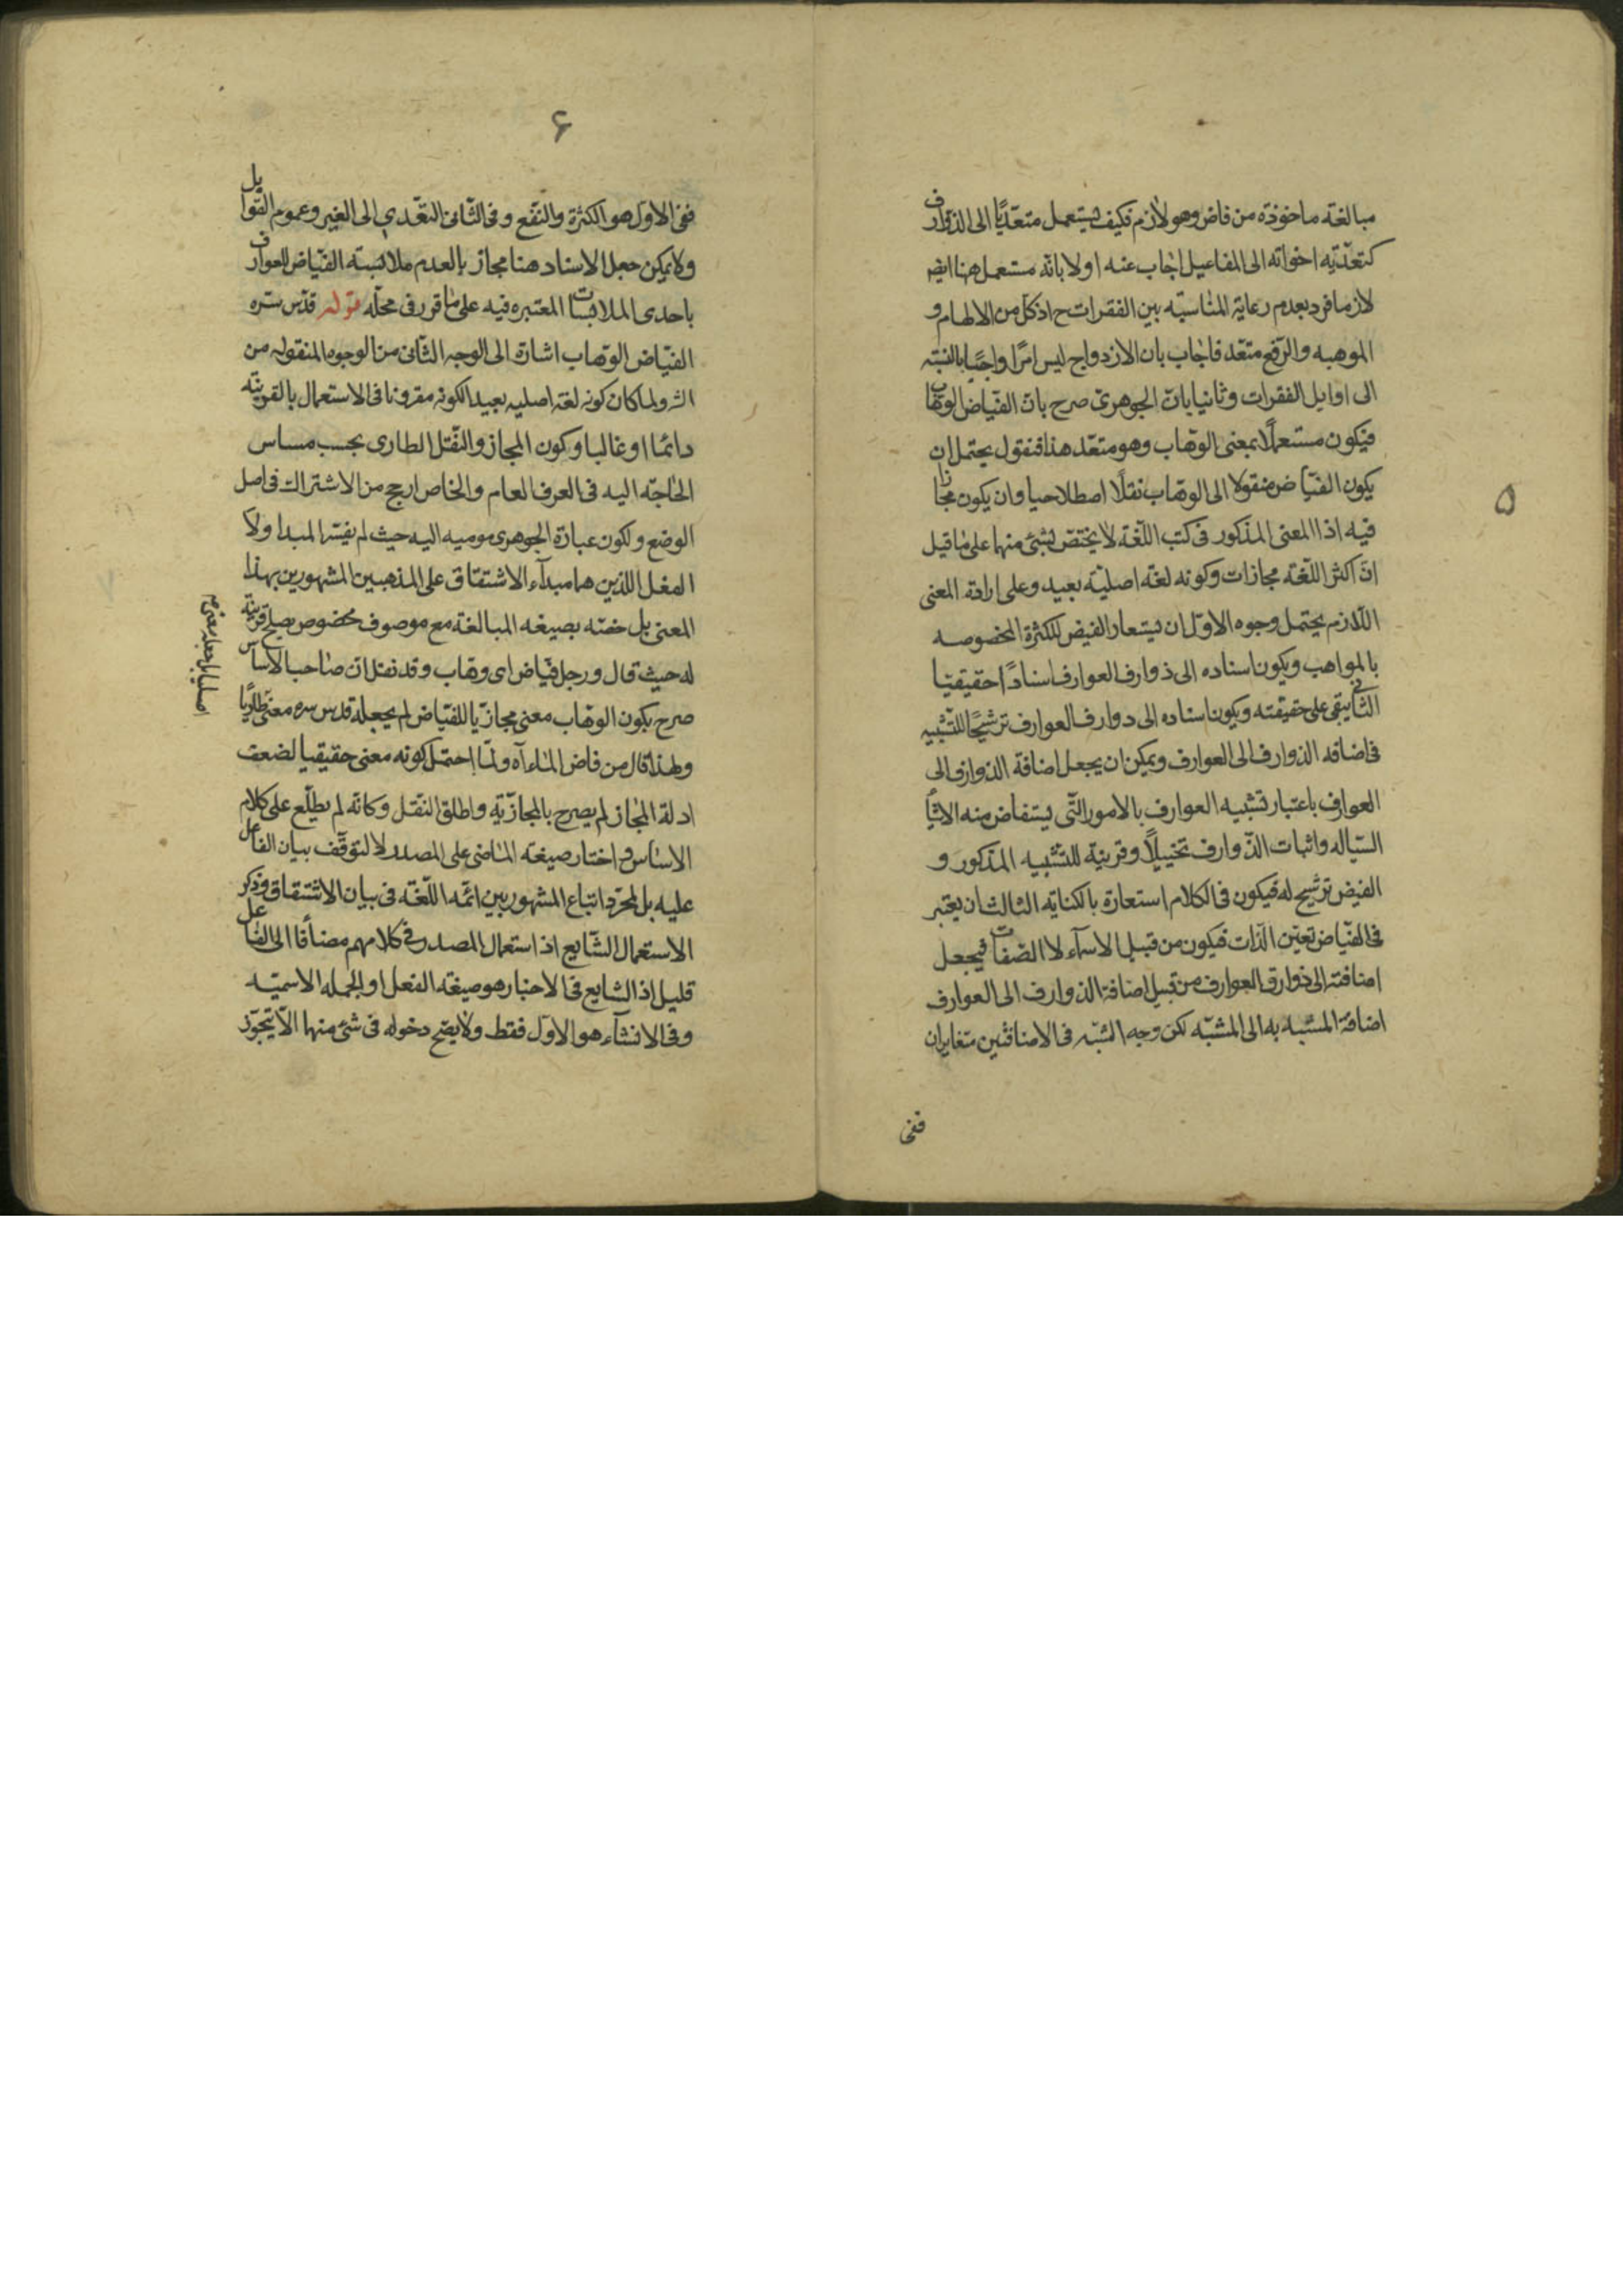 ۵
مبالغة ماخوذة من فاض وهو لازم فكيف يستعمل متعدّيًا الى الذوارف
كتعديّة اخواته الى المفاعيل اجاب عنه اولا بانّه مستعمل هنا ايضا
لازما فرد بعدم رعاية المناسبة بين الفقرات ح اذ كلّ من الالهام و
الموهبة والرّفع متعّد فاجاب بان الازدواج ليس امرًا واجبًا بالنسبة
الى اوايل الفقرات وثانيا بانّ الجوهرىّ صرح بانّ الفيّاض الوهّاب
فيكون مستعملًا بمعنى الوهّاب وهو متعّد هذا فنقول يحتمل ان
يكون الفيّاض منقولا الى الوهّاب نقلًا اصطلاحيا وان يكون مجازا
فيه اذا المعنى المذكور فى كتب اللّغة لا يختصّ بشئ منها على ما قيل
انّ اكثر اللّغة مجازات وكونه لغة اصليّة بعيد وعلى ارادة المعنى
اللّازم يحتمل وجوه الاوّل ان يستعار الفيض للكثرة المخصوصه
بالمواهب ويكون اسناده الى ذوارف العوارف اسنادًا حقيقيّا
الثانى يبقى على حقيقته ويكون اسناده الى دوارف العوارف ترشيحًا للتّشبيه
فى اضافه الذوارف الى العوارف ويمكن ان يجعل اضافة الذوارف الى
العوارف باعتبار تشبيه العوارف بالامور الّتى يستفاض منه الاشيا
السّياله واثبات الذّوارف تخييلًا وقرينة للتّشبيه المذكور و
الفيض ترشيح له فيكون فى الكلام استعارة بالكناية الثالث ان يعتبر
فى الفيّاض تعيّن الذّات فيكون من قبيل الاسمآء لا الصّفات فيجعل
اضافته الى ذوارف العوارف من قبيل اضافة الذوارف الى العوارف
اضافة المشبه به الى المشبّه لكن وجه الشبّه فى الاضافتين متغايران
ففى
۶
ففى الاوّل هو الكثرة والنّفع وفى الثّانى التعّدي الى الغير وعموم القوابل
ولا يمكن جعل الاسناد هنا مجازا بالعدم ملابسة الفيّاض للعوارف
باحدى الملابسات المعتبره فيه على ما قرر فى محلّه قوله قدّس سرّه
الفيّاض الوهّاب اشارة الى الوجه الثّانى من الوجوه المنقوله من
الشر ولما كان كونه لغة اصليه بعيدا لكونه مقرونا فى الاستعمال بالقرينة
دائما او غالبا وكون المجاز والنّقل الطارى بحسب مساس
الحاجّة اليه فى العرف العام والخاص ارجح من الاشتراك فى اصل
الوضع ولكون عبارة الجوهرى موميه اليه حيث لم يفسّر المبدا ولا
الفعل اللذين هما مبدآء الاشتقاق على المذهبين المشهورين بهذا
المعنى بل خصّه بصيغه المبالغة مع موصوف مخصوص يصلح قرينة
له حيث قال ورجل فيّاض اى وهّاب وقد نقل ان صاحب الاساس
صرح بكون الوهّاب معنى مجازيّا للفيّاض لم يجعله قدس سره معنى طاريًا
اصليا بل جعله معنى
ولهذا قال من فاض الماء آه ولمّا احتمل كونه معنى حقيقيا لضعف
ادلة المجاز لم يصرح بالمجازيّة واطلق النّقل وكانّه لم يطلّع على كلام
الاساس واختار صيغة الماضى على المصدر لا لتوقّف بيان الفاعل
عليه بل لمجرّد اتباع المشهور بين ائمّه اللّغة فى بيان الاشتقاق وذكر
الاستعمال الشّايع اذ استعمال المصدر فى كلامهم مضافا الى الفاعل
قليل اذ الشايع فى الاخبار هو صيغة الفعل او الجمله الاسميّه
وفى الانشآء هو الاوّل فقط ولا يصّح دخوله فى شئ منها الّا بتجوّز